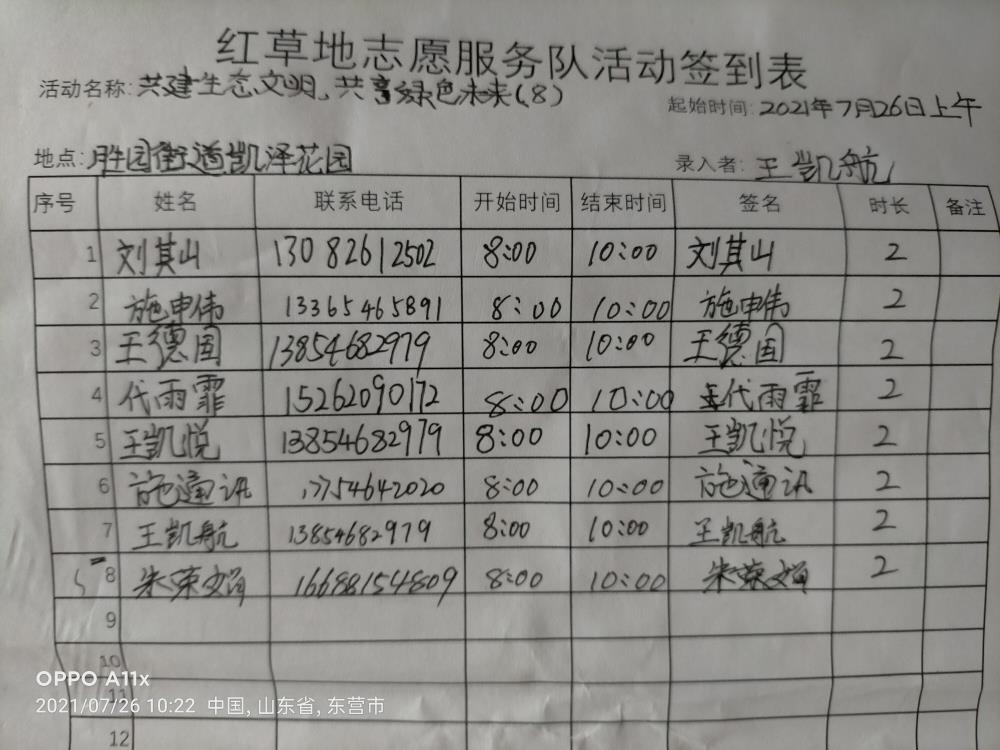 红草地志愿服务队活动签到表
活动名称：共建生态文明，共享绿色未来（8）
起始时间：2021年7月26日上午
地点：胜园街道凯泽花园
录入者：王凯航
序号 姓名 联系电话 开始时间 结束时间 签名 时长 备注
1 刘其山 13082612502 8:00 10:00 刘其山 2
2 施申伟 13365465891 8:00 10:00 施申伟 2
3 王德国 13854682979 8:00 10:00 王德国 2
4 代雨霏 15262090172 8:00 10:00 代雨霏 2
5 王凯悦 13854682979 8:00 10:00 王凯悦 2
6 施通讯 8:00 10:00 施通讯 2
7 王凯航 13854682979 8:00 10:00 王凯航 2
8 朱荣娟 16688154809 8:00 10:00 朱荣娟 2
9
10
11
12
OPPO A11x
2021/07/26 10:22 中国, 山东省, 东营市